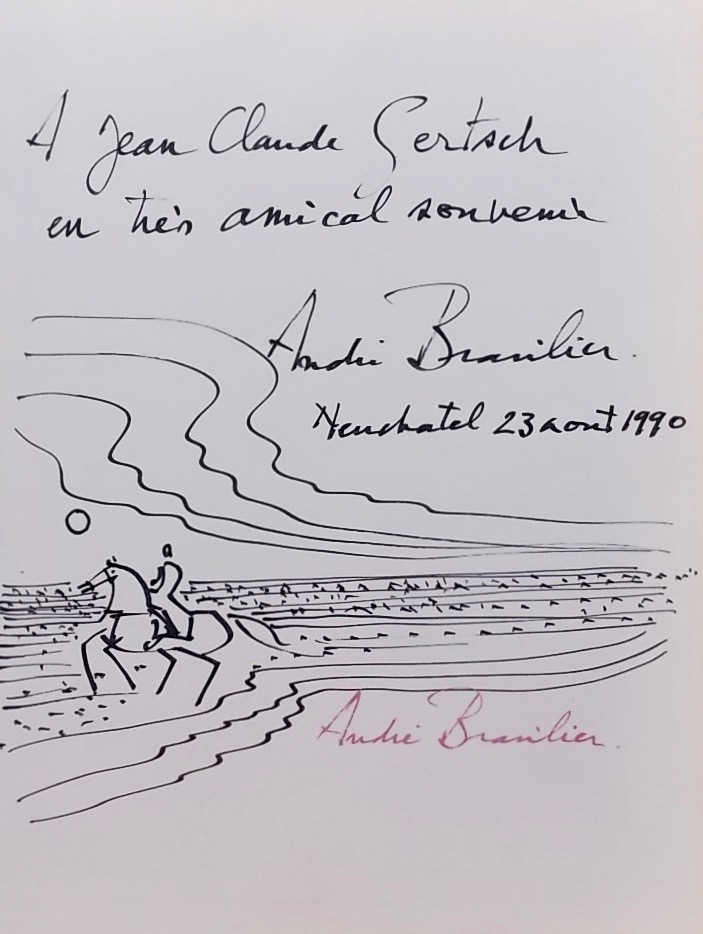 A Jean Claude Gertsch
en très amical souvenir
André Brasilier.
Neuchatel 23 aout 1990
André Brasilier.